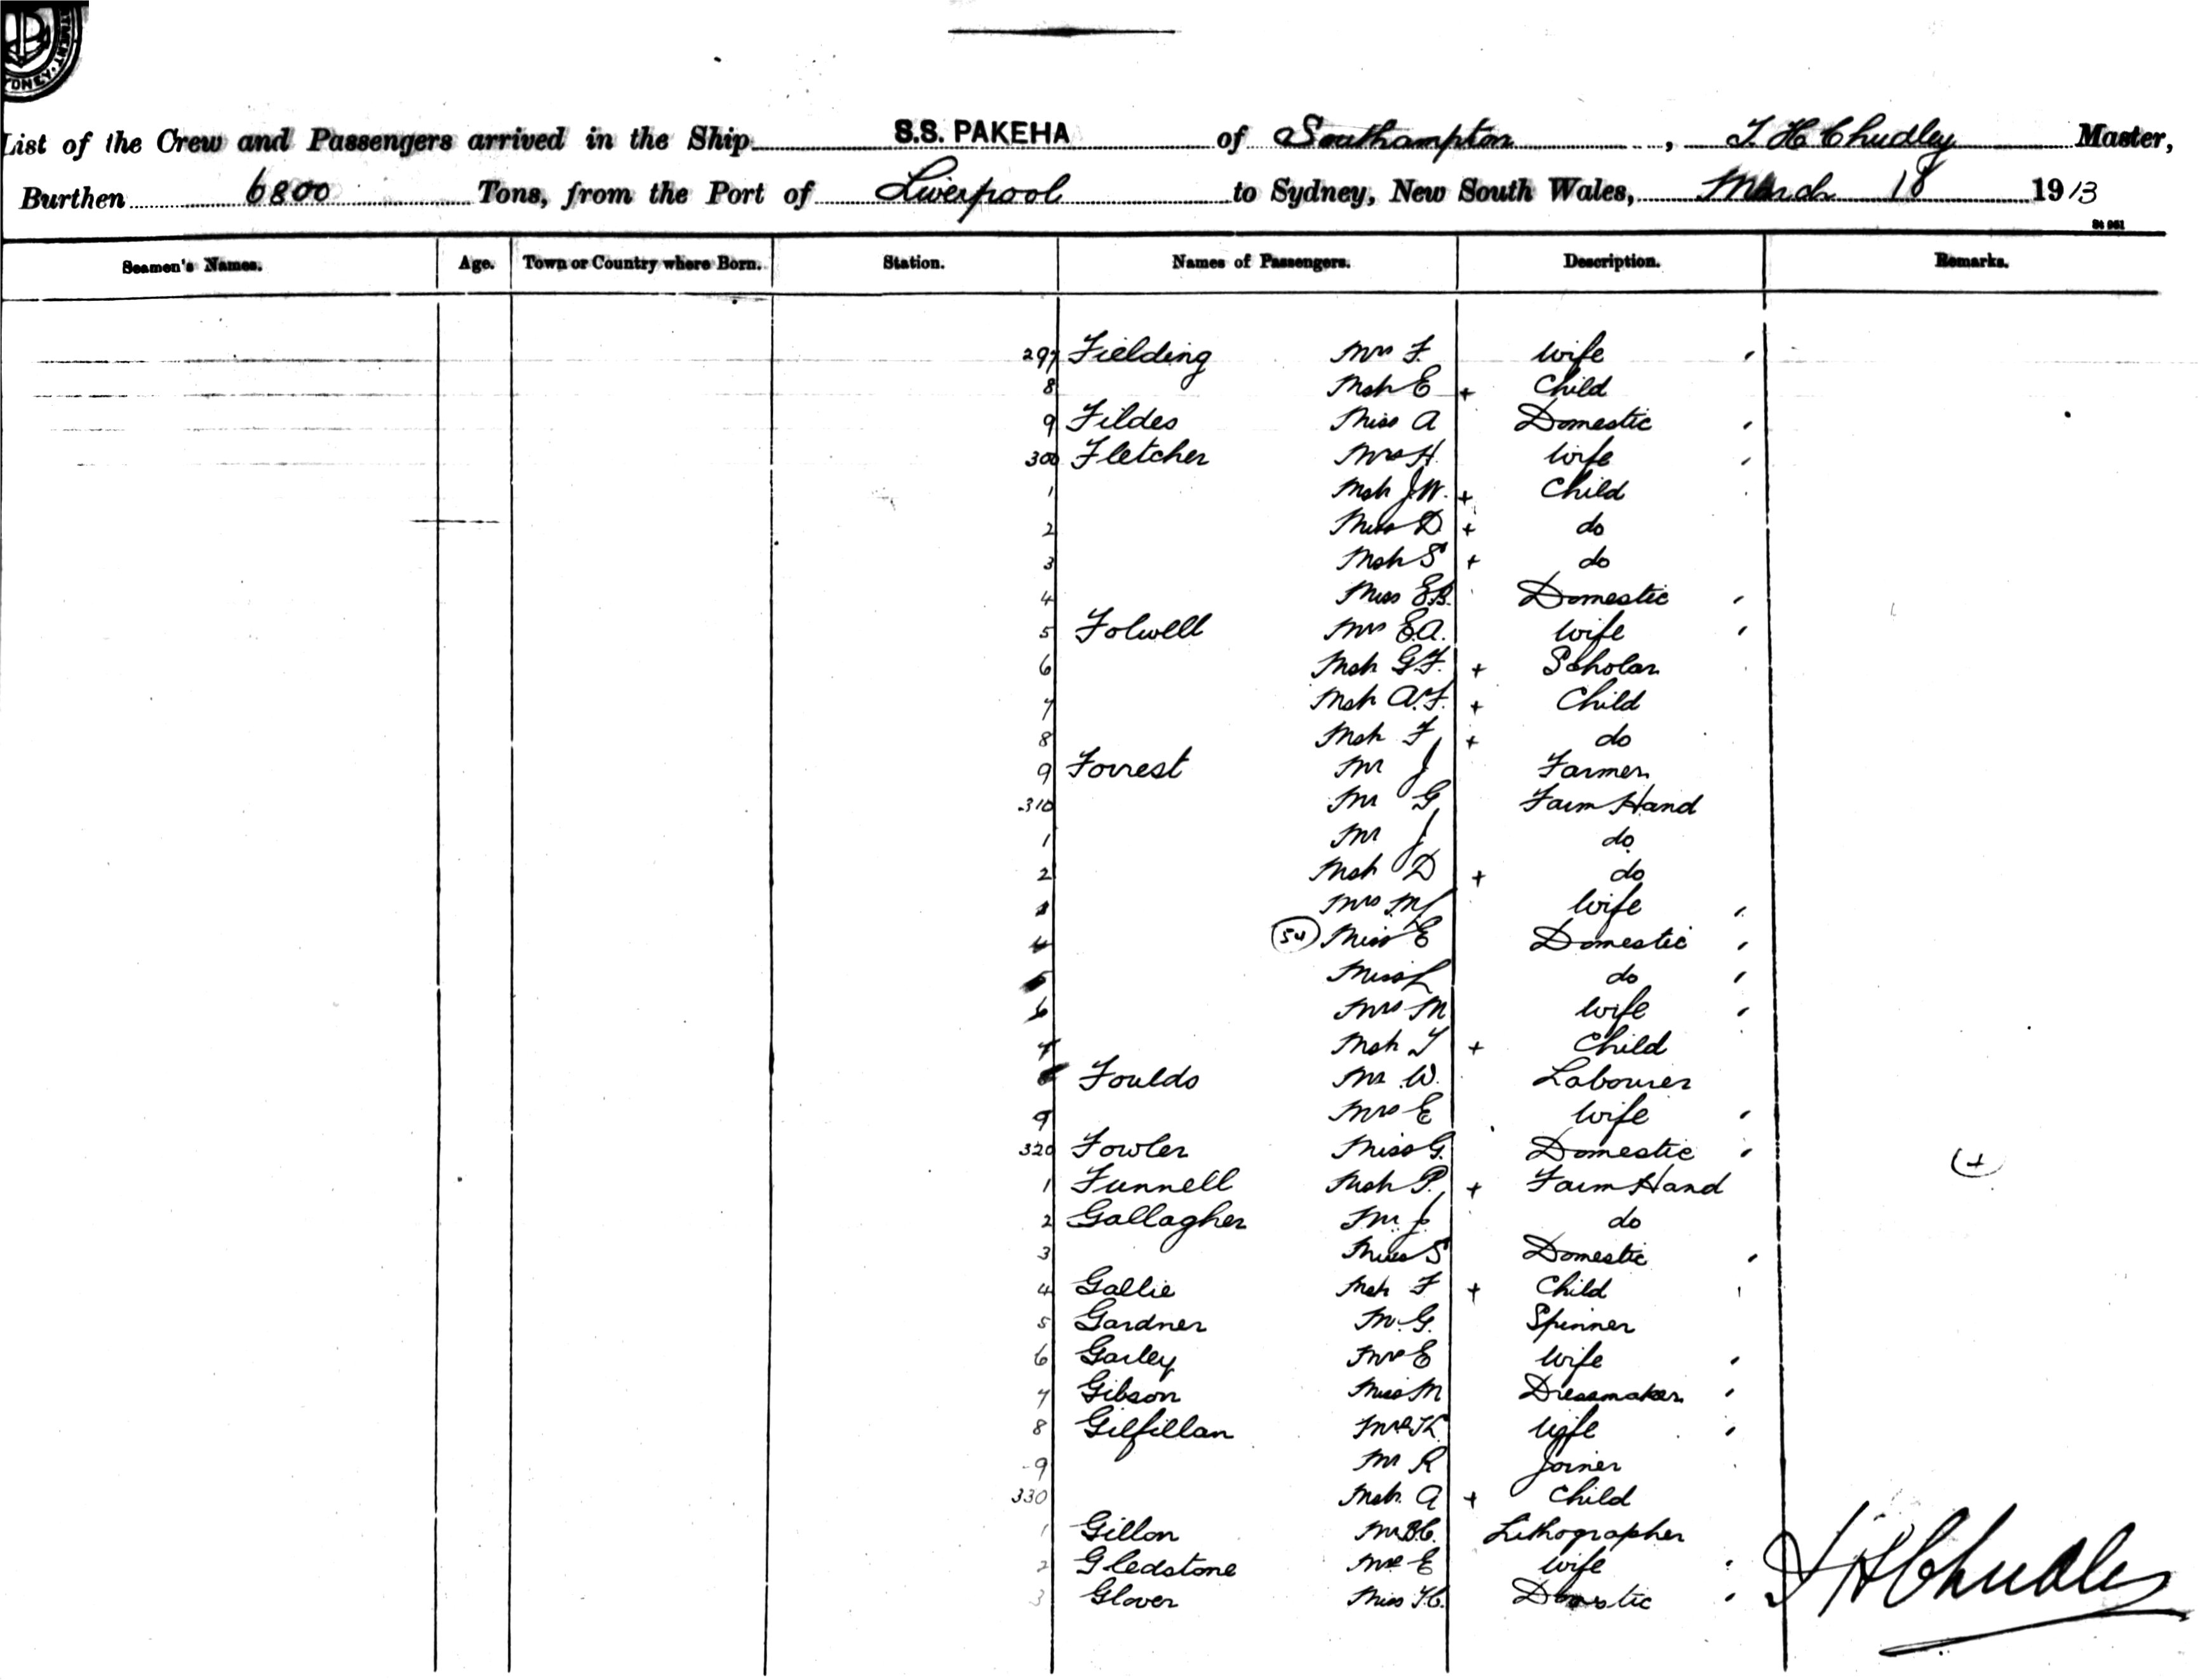 DNEY
List of the Crew and Passengers arrived in the Ship S.S. PAKEHA of Southampton, T. H. Chudley Master,
Burthen 6800 Tons, from the Port of Liverpool to Sydney, New South Wales, March 18 1913
Seamen's Names. Age. Town or Country where Born. Station. Names of Passengers. Description. Remarks.
297 Fielding Mrs F. Wife
8 Mstr E + Child
9 Fildes Miss A Domestic
300 Fletcher Mrs H Wife
1 Mstr J.W. + Child
2 Miss D + do
3 Mstr S + do
4 Miss E.B. Domestic
5 Folwell Mrs E.A. Wife
6 Mstr G.F. + Scholar
7 Mstr A.F. + Child
8 Mstr F + do
9 Forrest Mr J Farmer
310 Mr G Farm Hand
1 Mr J do
2 Mstr D + do
Mrs M Wife
4 (54) Miss E Domestic
5 Miss L do
6 Mrs M Wife
7 Mstr T + Child
Foulds Mr W. Labourer
9 Mrs E Wife
320 Fowler Miss G. Domestic
1 Funnell Mstr P. + Farm Hand
2 Gallagher Mr J. do
3 Miss S Domestic
4 Gallie Mstr F + Child
5 Gardner Mr G. Spinner
6 Garley Mrs E Wife
7 Gibson Miss M Dressmaker
8 Gilfillan Mrs K Wife
9 Mr R Joiner
330 Mstr A + Child
1 Gillon Mr B.C. Lithographer
2 Gledstone Mrs E Wife
3 Glover Miss Domestic
T H Chudley